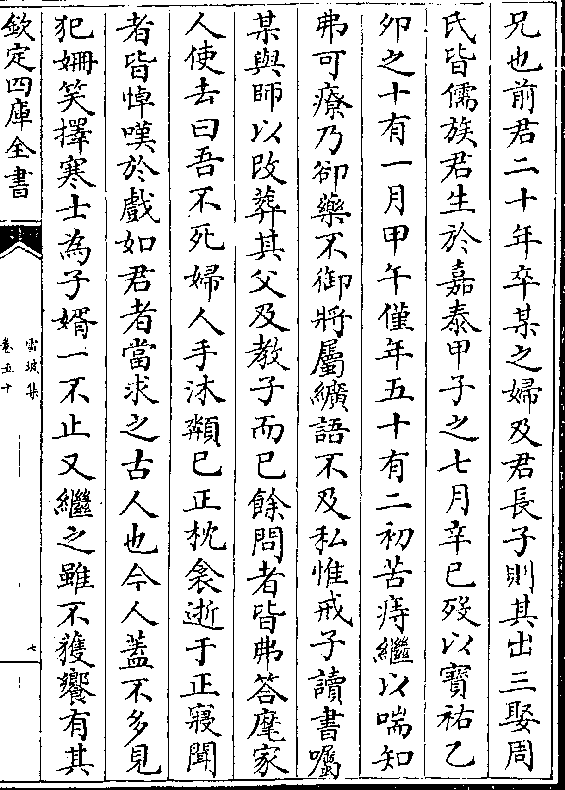 兄也前君二十年卒某之婦及君長子則其出三娶周
氏皆儒族君生於嘉泰甲子之七月辛巳歿以寳祐乙
夘之十有一月甲午僅年五十有二初苦痔繼以喘知
弗可療乃卻藥不御將屬纊語不及私惟戒子讀書囑
某與師以改葬其父及教子而已餘問者皆弗答麾家
人使去曰吾不死婦人手沐頮已正枕衾逝于正寢聞
者皆悼嘆於戲如君者當求之古人也今人蓋不多見
犯姍笑擇寒士為子婿一不止又繼之雖不獲饗有其
欽定四庫全書
雪坡集
卷五十
七